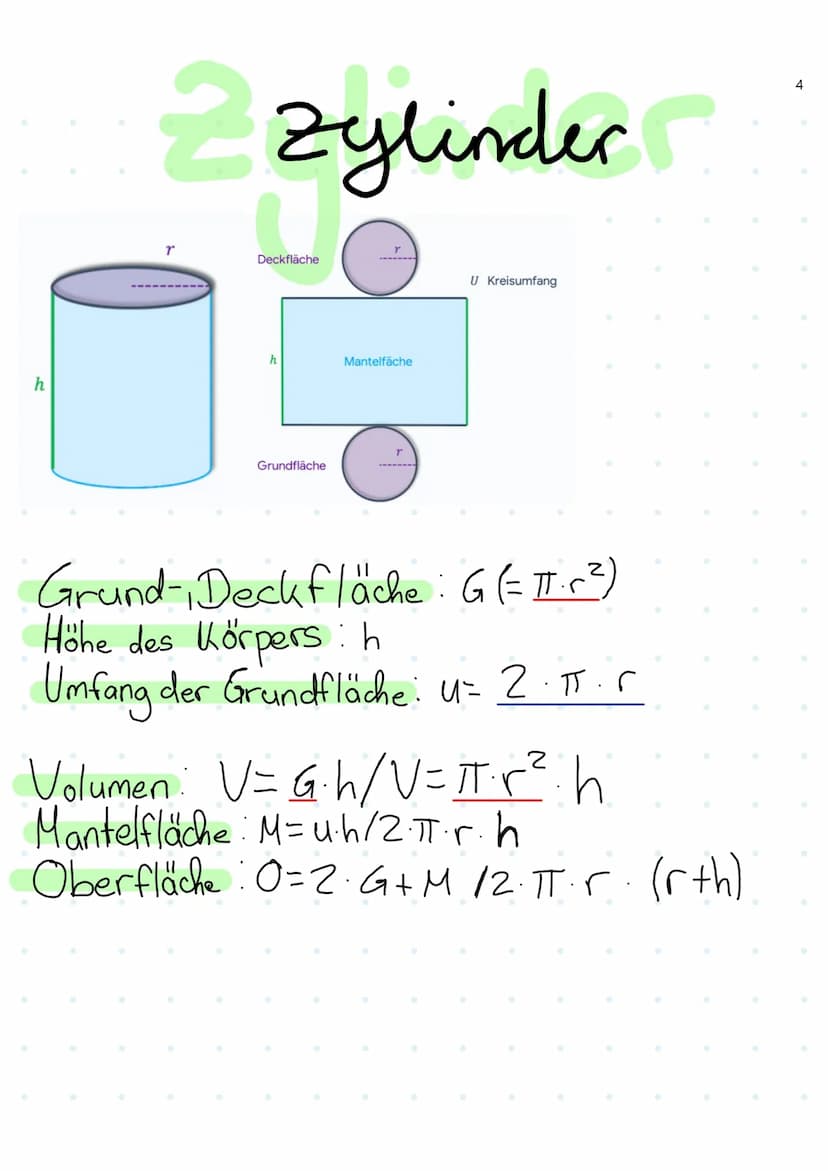 4
Zylinder
Zylinder
r
Deckfläche
r
U Kreisumfang
h
h
Mantelfäche
Grundfläche
r
Grund-, Deckfläche: G (= π·r²)
Höhe des Körpers: h
Umfang der Grundfläche: u= 2·π·r
Volumen: V= G·h/V= π·r²·h
Mantelfläche: M= u·h/2·π·r·h
Oberfläche: O=2·G+M /2·π·r·(r+h)